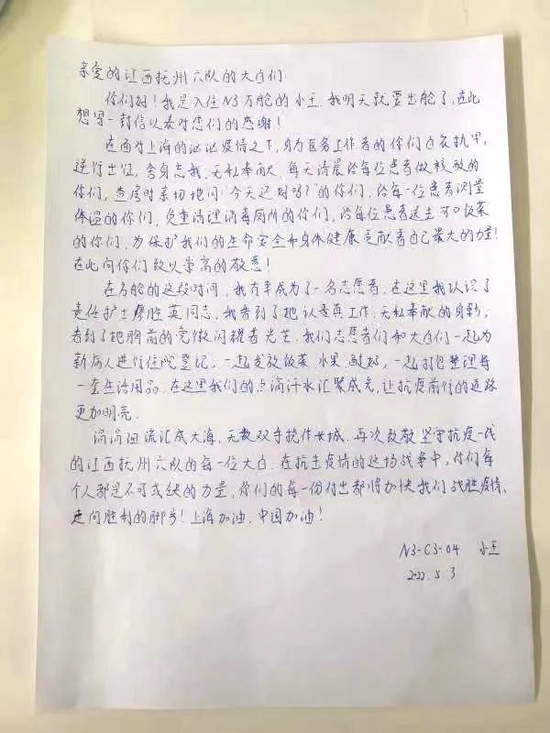 亲爱的江西抚州六队的大白们:
你们好!我是入住N3方舱的小王,我明天就要出舱了,在此
想写一封信以表对您们的感谢!
在面对上海的汹汹疫情之下,身为医务工作者的你们白衣执甲,
逆行出征,舍身忘我,无私奉献,每天清晨给每位患者做核酸的
你们,查房时亲切地问"今天还好吗?"的你们,给每一位患者测量
体温的你们,负重清理消毒厕所的你们,给每位患者送去可口饭菜
的你们,为保护我们的生命安全和身体健康贡献着自己最大的力量!
在此向你们致以崇高的敬意!
在方舱的这段时间,我有幸成为了一名志愿者,在这里我认识了
责任护士 胜英同志,我看到了她认真工作、无私奉献的身影,
看到了她胸前的党徽闪耀着光芒,我们志愿者们和大白们一起为
新病人进行住院登记,一起发放饭菜、水果、 ,一起打包整理每
一套生活用品,在这里我们的点滴汗水汇聚成光,让抗疫前行的道路
更加明亮.
涓涓细流汇成大海,无数双手撑作长城.再次致敬坚守抗疫一线
的江西抚州六队的每一位大白,在抗击疫情的这场战争中,你们每
个人都是不可或缺的力量,你们的每一份付出都将加快我们战胜疫情、
走向胜利的脚步!上海加油,中国加油!
N3-C3-04 小王
2022.5.3